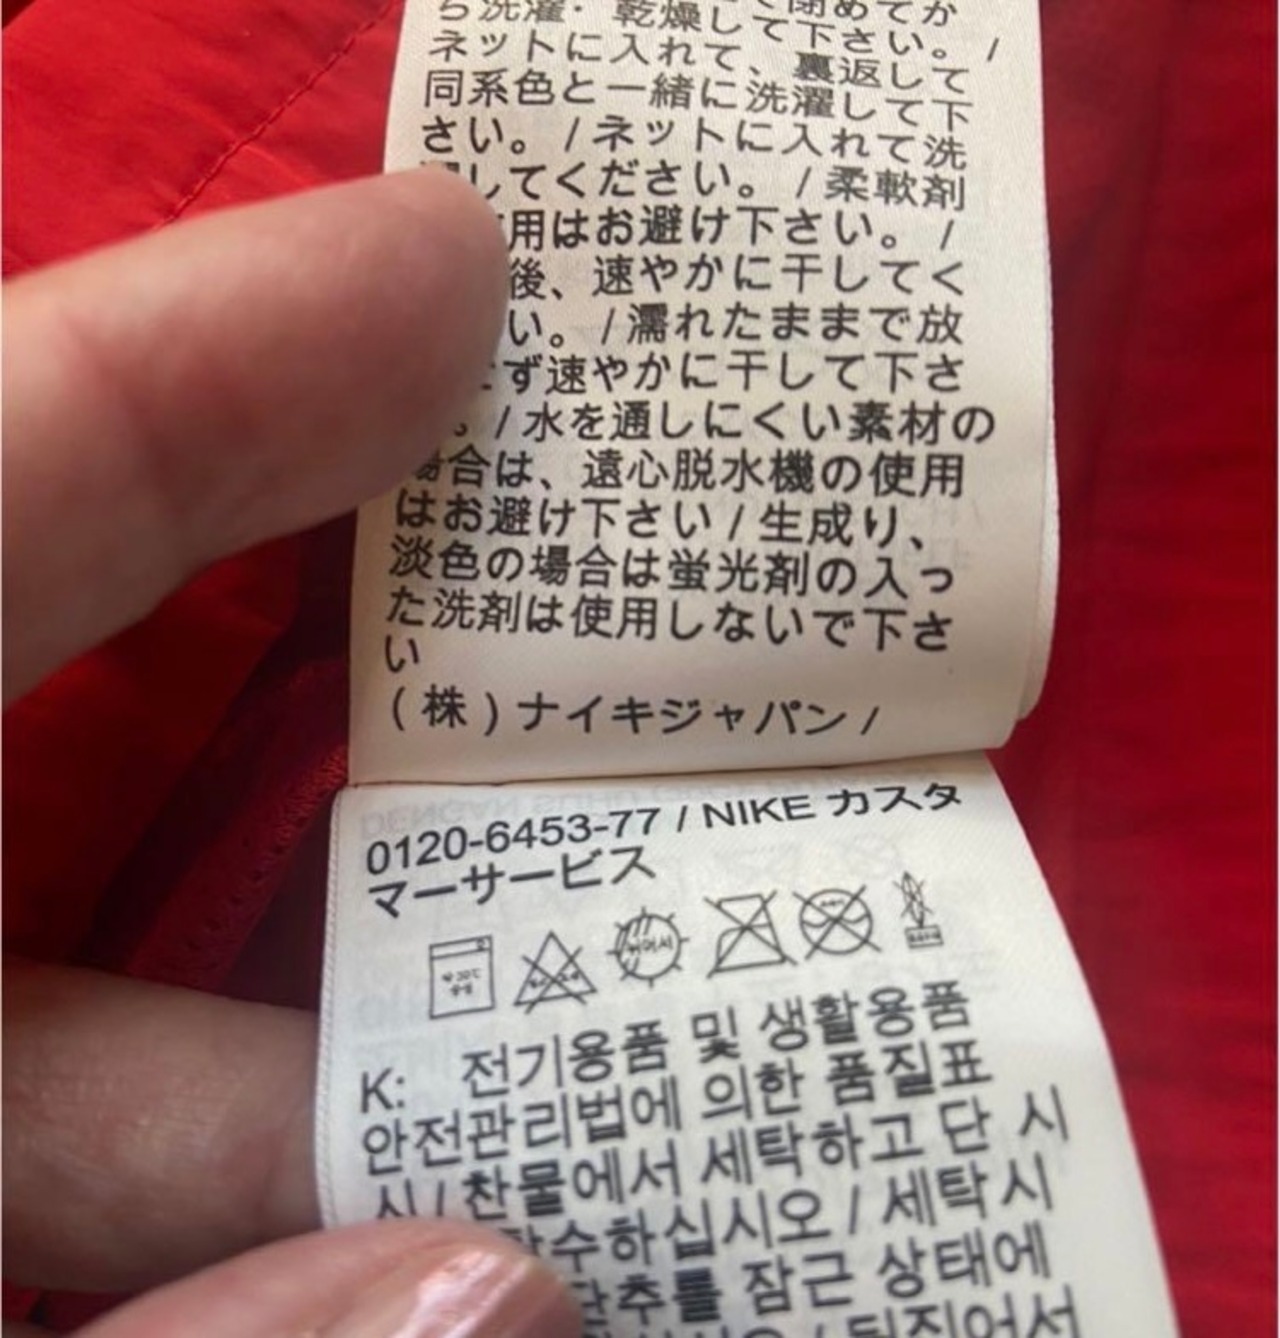 閉めてか
ら洗濯・乾燥して下さい。 /
ネットに入れて、裏返して
同系色と一緒に洗濯して下
さい。 / ネットに入れて洗
してください。 / 柔軟剤
用はお避け下さい。 /
後、速やかに干してく
い。 / 濡れたままで放
ず速やかに干して下さ
。 / 水を通しにくい素材の
場合は、遠心脱水機の使用
はお避け下さい / 生成り、
淡色の場合は蛍光剤の入っ
た洗剤は使用しないで下さ
い
(株)ナイキジャパン /
0120-6453-77 / NIKE カスタ
マーサービス
K: 전기용품 및 생활용품
안전관리법에 의한 품질표
시 / 찬물에서 세탁하고 단 시
수하십시오 / 세탁시
단추를 잠근 상태에
뒤집어서